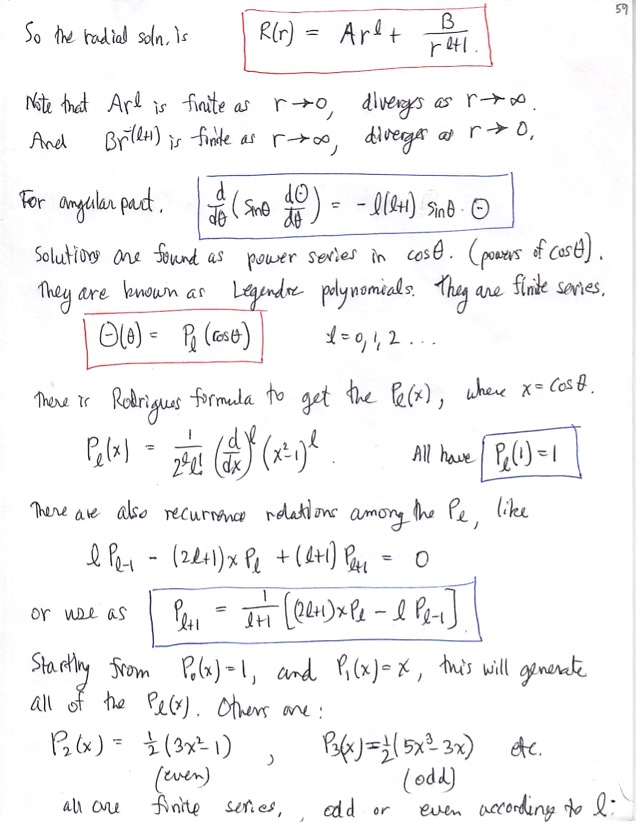 59
So the radial soln. is R(r) = Ar^l + B/r^(l+1).
Note that Ar^l is finite as r→0, diverges as r→∞.
And Br^-(l+1) is finite as r→∞, diverges as r→0,
For angular part. d/dθ (sinθ dΘ/dθ) = -l(l+1) sinθ · Θ
Solutions are found as power series in cosθ. (powers of cosθ).
They are known as Legendre polynomials. They are finite series.
Θ(θ) = P_l(cosθ) l = 0, 1, 2 ...
There is Rodrigues formula to get the P_l(x), where x = cosθ.
P_l(x) = 1/(2^l l!) (d/dx)^l (x²-1)^l. All have P_l(1) = 1
There are also recurrence relations among the P_l, like
l P_(l-1) - (2l+1) x P_l + (l+1) P_(l+1) = 0
or use as P_(l+1) = 1/(l+1) [(2l+1) x P_l - l P_(l-1)]
Starting from P₀(x) = 1, and P₁(x) = x, this will generate
all of the P_l(x). Others are:
P₂(x) = ½(3x²-1) , P₃(x) = ½(5x³-3x) etc.
(even) (odd)
all are finite series, odd or even according to l: